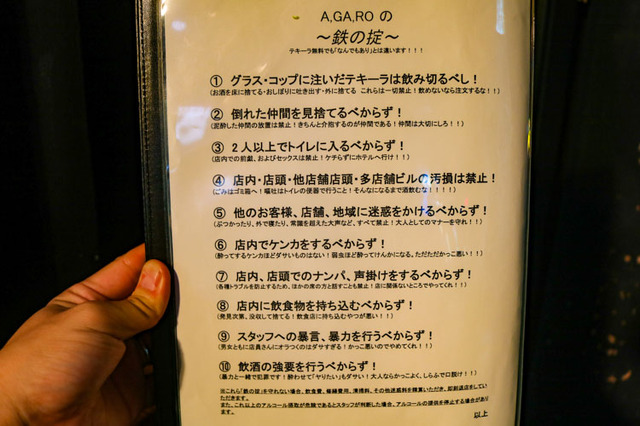 A,GA,RO の
〜鉄の掟〜
テキーラ無料でも「なんでもあり」とは違います！！！
① グラス・コップに注いだテキーラは飲み切るべし！
（お酒を床に捨てる・おしぼりに吐き出す・外に捨てる これらは一切禁止！飲めないなら注文するな！！）
② 倒れた仲間を見捨てるべからず！
（泥酔した仲間の放置は禁止！きちんと介抱するのが仲間である！仲間は大切にしろ！！）
③ ２人以上でトイレに入るべからず！
（店内での前戯、およびセックスは禁止！ケチらずにホテルへ行け！！）
④ 店内・店頭・他店舗店頭・多店舗ビルの汚損は禁止！
（ごみはゴミ箱へ！嘔吐はトイレの便器で行うこと！そんなになるまで酒飲むな！！！！）
⑤ 他のお客様、店舗、地域に迷惑をかけるべからず！
（ぶつかったり、外で寝たり、常識を超えた大声など、すべて禁止！大人としてのマナーを守れ！！）
⑥ 店内でケンカをするべからず！
（酔ってするケンカほどダサいものはない！弱虫ほど酔ってけんかになる。ただただかっこ悪い！！）
⑦ 店内、店頭でのナンパ、声掛けをするべからず！
（各種トラブルを防止するため、ほかの席の方と話すことも禁止！店に関係ないところでやってくれ！！）
⑧ 店内に飲食物を持ち込むべからず！
（発見次第、没収して捨てる！飲食店に持ち込むやつが悪い！！）
⑨ スタッフへの暴言、暴力を行うべからず！
（男女ともに店員さんにオラつくのはダサすぎる！かっこ悪いのでやめてくれ！！）
⑩ 飲酒の強要を行うべからず！
（暴力と一緒で犯罪です！酔わせて「ヤりたい」もダサい！大人ならかっこよく、しらふで口説け！！）
※これら「鉄の掟」を守れない場合、飲食費、修繕費用、清掃料、その他迷惑料を精算いただき、即刻退店をしていただきます。
また、これ以上のアルコール摂取が危険であるとスタッフが判断した場合、アルコールの提供を停止する場合があります。
以上